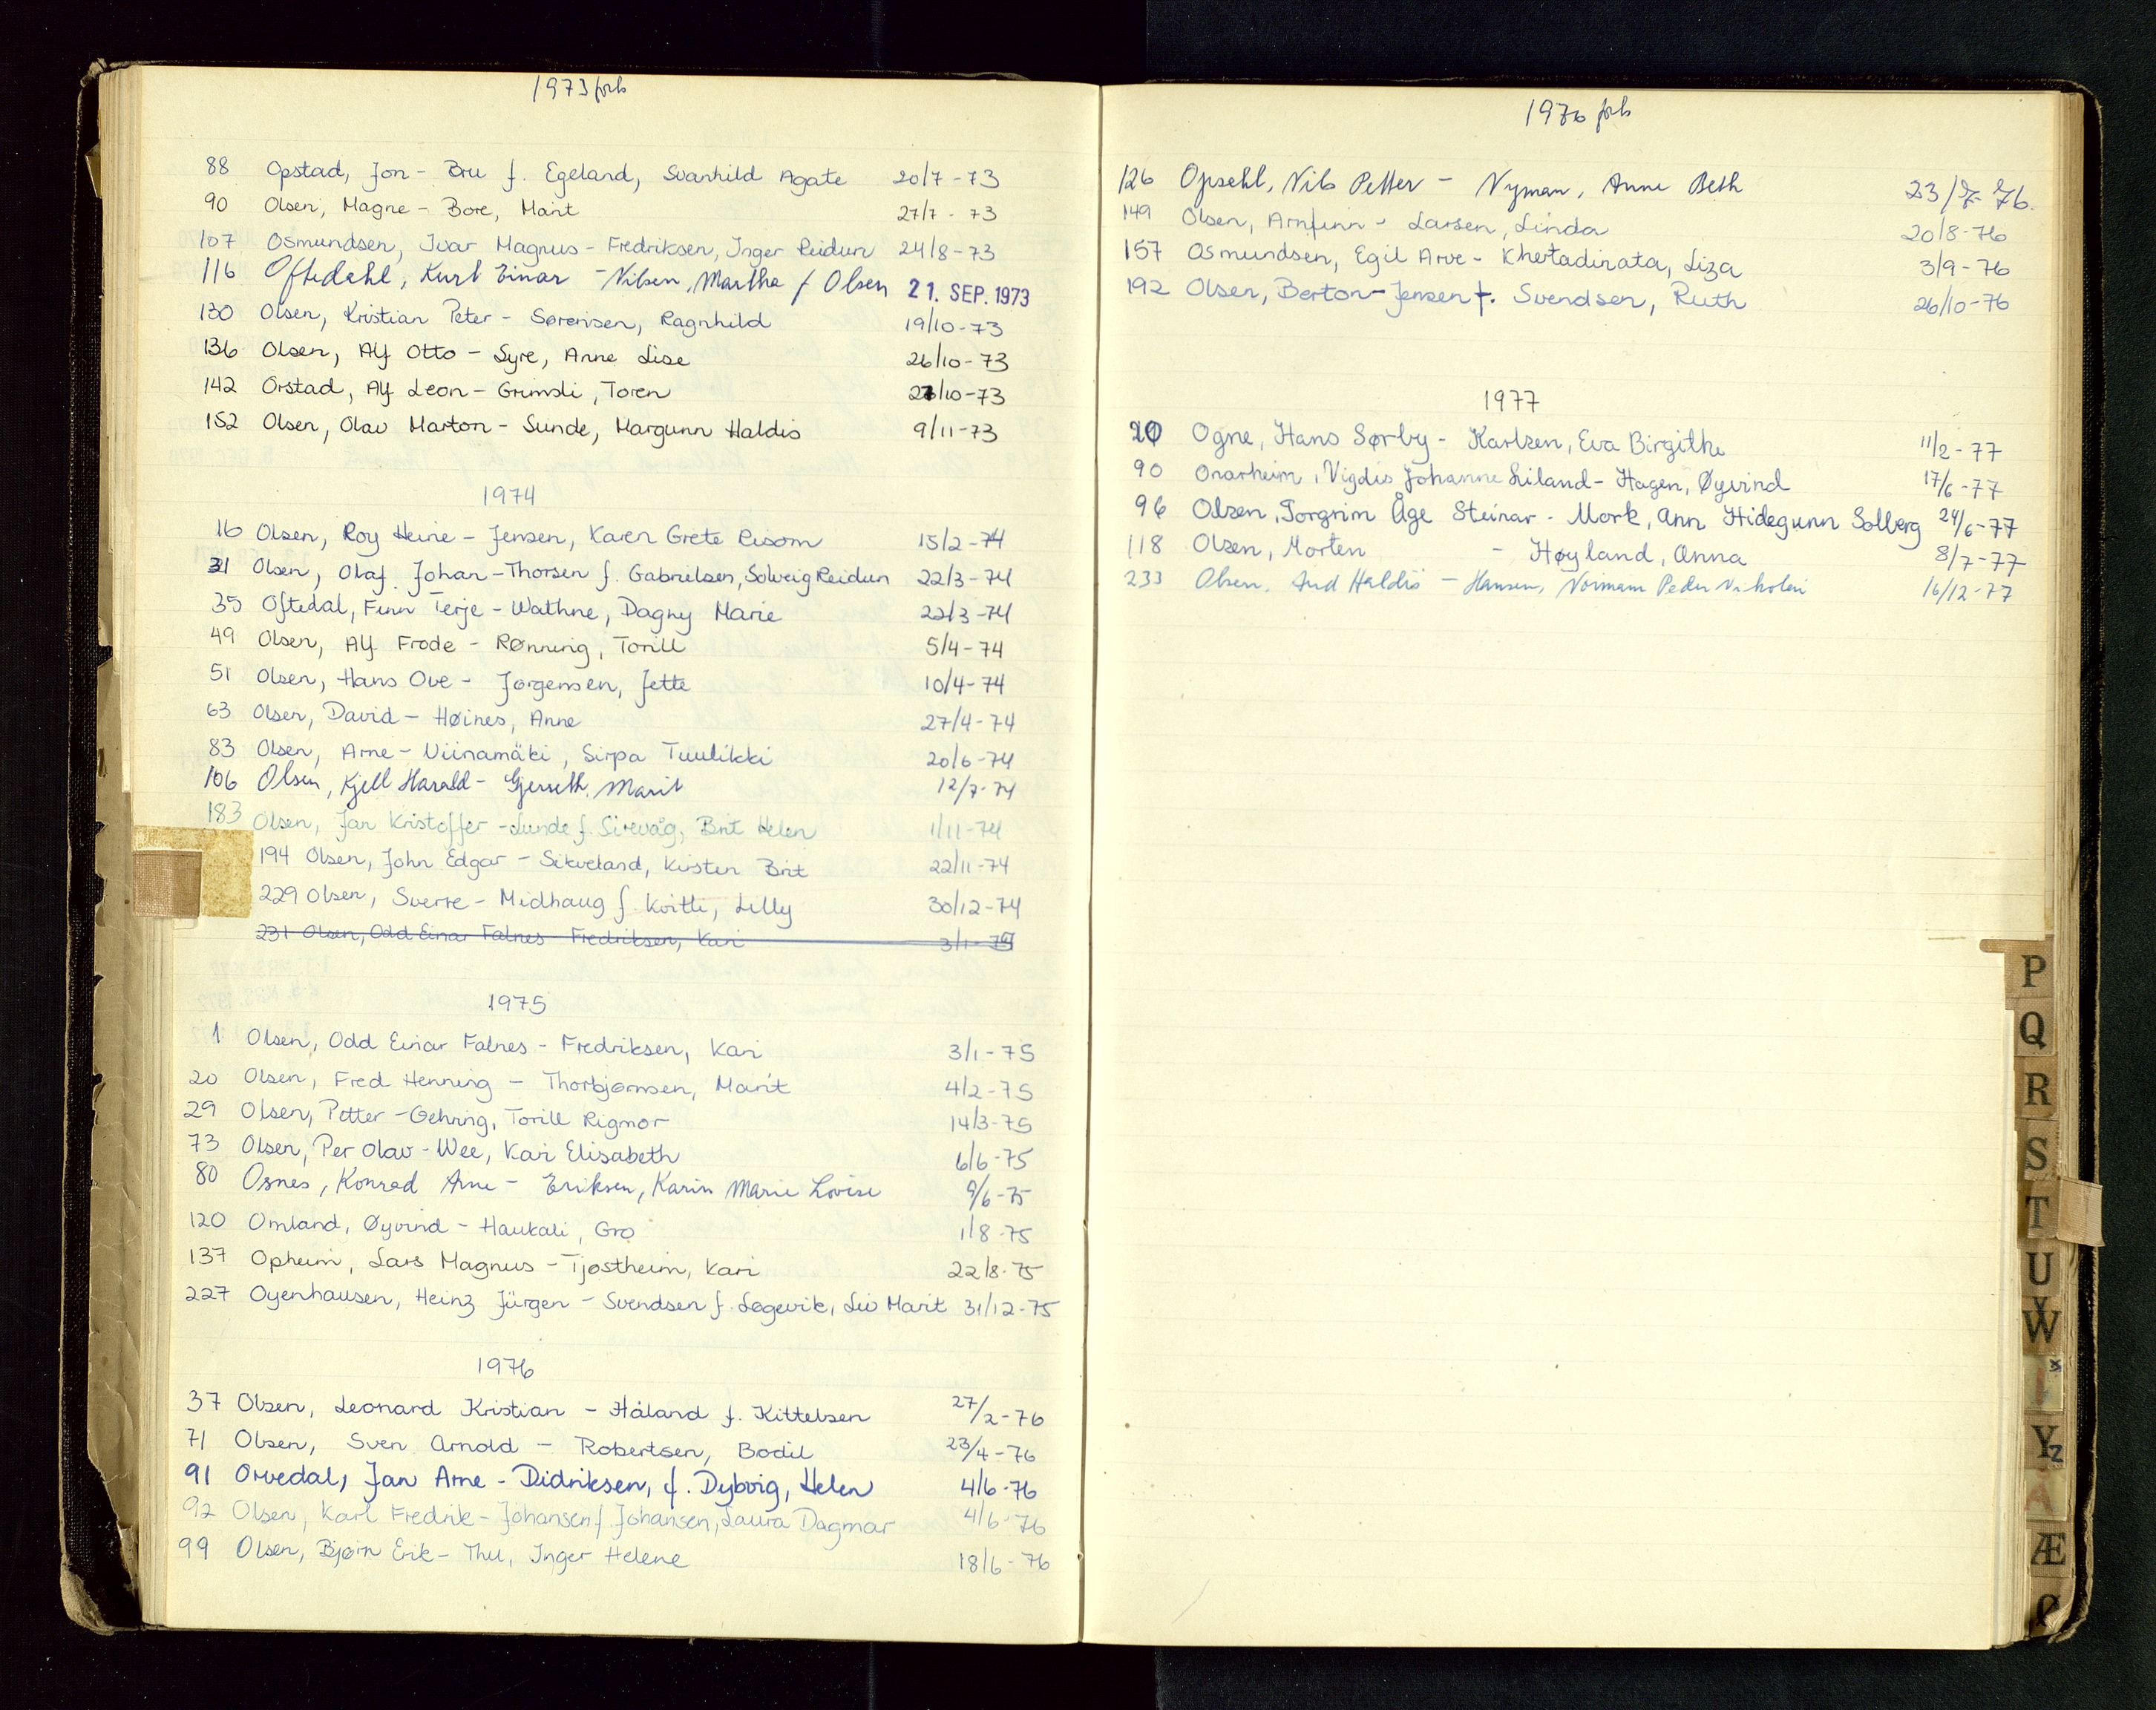 1973 forts
88 Opstad, Jon - Bru f. Egeland, Svanhild Agate 20/7-73
90 Olsen, Magne - Bore, Marit 27/7-73
107 Osmundsen, Ivar Magnus - Fredriksen, Inger Reidun 24/8-73
116 Oftedahl, Kurt Einar - Nilsen, Martha f Olsen 21. SEP. 1973
130 Olsen, Kristian Peter - Sørensen, Ragnhild 19/10-73
136 Olsen, Alf Otto - Syre, Anne Lise 26/10-73
142 Orstad, Alf Leon - Grimsli, Toren /10-73
152 Olsen, Olav Marton - Sunde, Margunn Haldis 9/11-73
1974
16 Olsen, Roy Heine - Jensen, Karen Grete Risom 15/2-74
31 Olsen, Olaf Johan - Thorsen f. Gabrielsen, Solveig Reidun 22/3-74
35 Oftedal, Finn Terje - Wathne, Dagny Marie 22/3-74
49 Olsen, Alf Frode - Rønning, Torill 5/4-74
51 Olsen, Hans Ove - Jørgensen, Jette 10/4-74
63 Olsen, David - Høines, Anne 27/4-74
83 Olsen, Arne - Viinamäki, Sirpa Tuulikki 20/6-74
106 Olsen, Kjell Harald - Gjerseth, Marit 12/7-74
183 Olsen, Jan Kristoffer - Lunde f. Sirevåg, Brit Helen 1/11-74
194 Olsen, John Edgar - Sikveland, Kirsten Brit 22/11-74
229 Olsen, Sverre - Midhaug f. Kvitli, Lilly 30/12-74
231 Olsen, Odd Einar Falnes - Fredriksen, Kari 3/1-
1975
1 Olsen, Odd Einar Falnes - Fredriksen, Kari 3/1-75
20 Olsen, Fred Henning - Thorbjørnsen, Marit 4/2-75
29 Olsen, Petter - Gehring, Torill Rigmor 14/3-75
73 Olsen, Per Olav - Wee, Kari Elisabeth 6/6-75
80 Osnes, Konrad Arne - Eriksen, Karin Marie Lovise 9/6-75
120 Omland, Øyvind - Haukali, Gro 1/8-75
137 Opheim, Lars Magnus - Tjøstheim, Kari 22/8-75
227 Oyenhausen, Heinz Jürgen - Svendsen f. Løgevik, Liv Marit 31/12-75
1976
37 Olsen, Leonard Kristian - Håland f. Kittelsen 27/2-76
71 Olsen, Sven Arnold - Robertsen, Bodil 23/4-76
91 Orvedal, Jan Arne - Didriksen, f. Dybvig, Helen 4/6-76
92 Olsen, Karl Fredrik - Johansen f. Johansen, Laura Dagmar 4/6-76
99 Olsen, Bjørn Erik - Thu, Inger Helene 18/6-76
1976 forts
126 Opsehl, Nils Petter - Nyman, Anne Beth 23/7-76.
149 Olsen, Arnfinn - Larsen, Linda 20/8-76
157 Osmundsen, Egil Arve - Khertadinata, Liza 3/9-76
192 Olsen, Berton - Jensen f. Svendsen, Ruth 26/10-76
1977
20 Ogne, Hans Sørby - Karlsen, Eva Birgithe 11/2-77
90 Onarheim, Vigdis Johanne Liland - Hagen, Øyvind 17/6-77
96 Olsen, Torgrim Åge Steinar - Mork, Ann Hidegunn Solberg 24/6-77
118 Olsen, Morten - Høyland, Anna 8/7-77
233 Olsen, Aud Haldis - Hansen, Normann Peder Nikolai 16/12-77
P
Q
R
S
T
U
V
W
X
Y
Z
Å
Æ